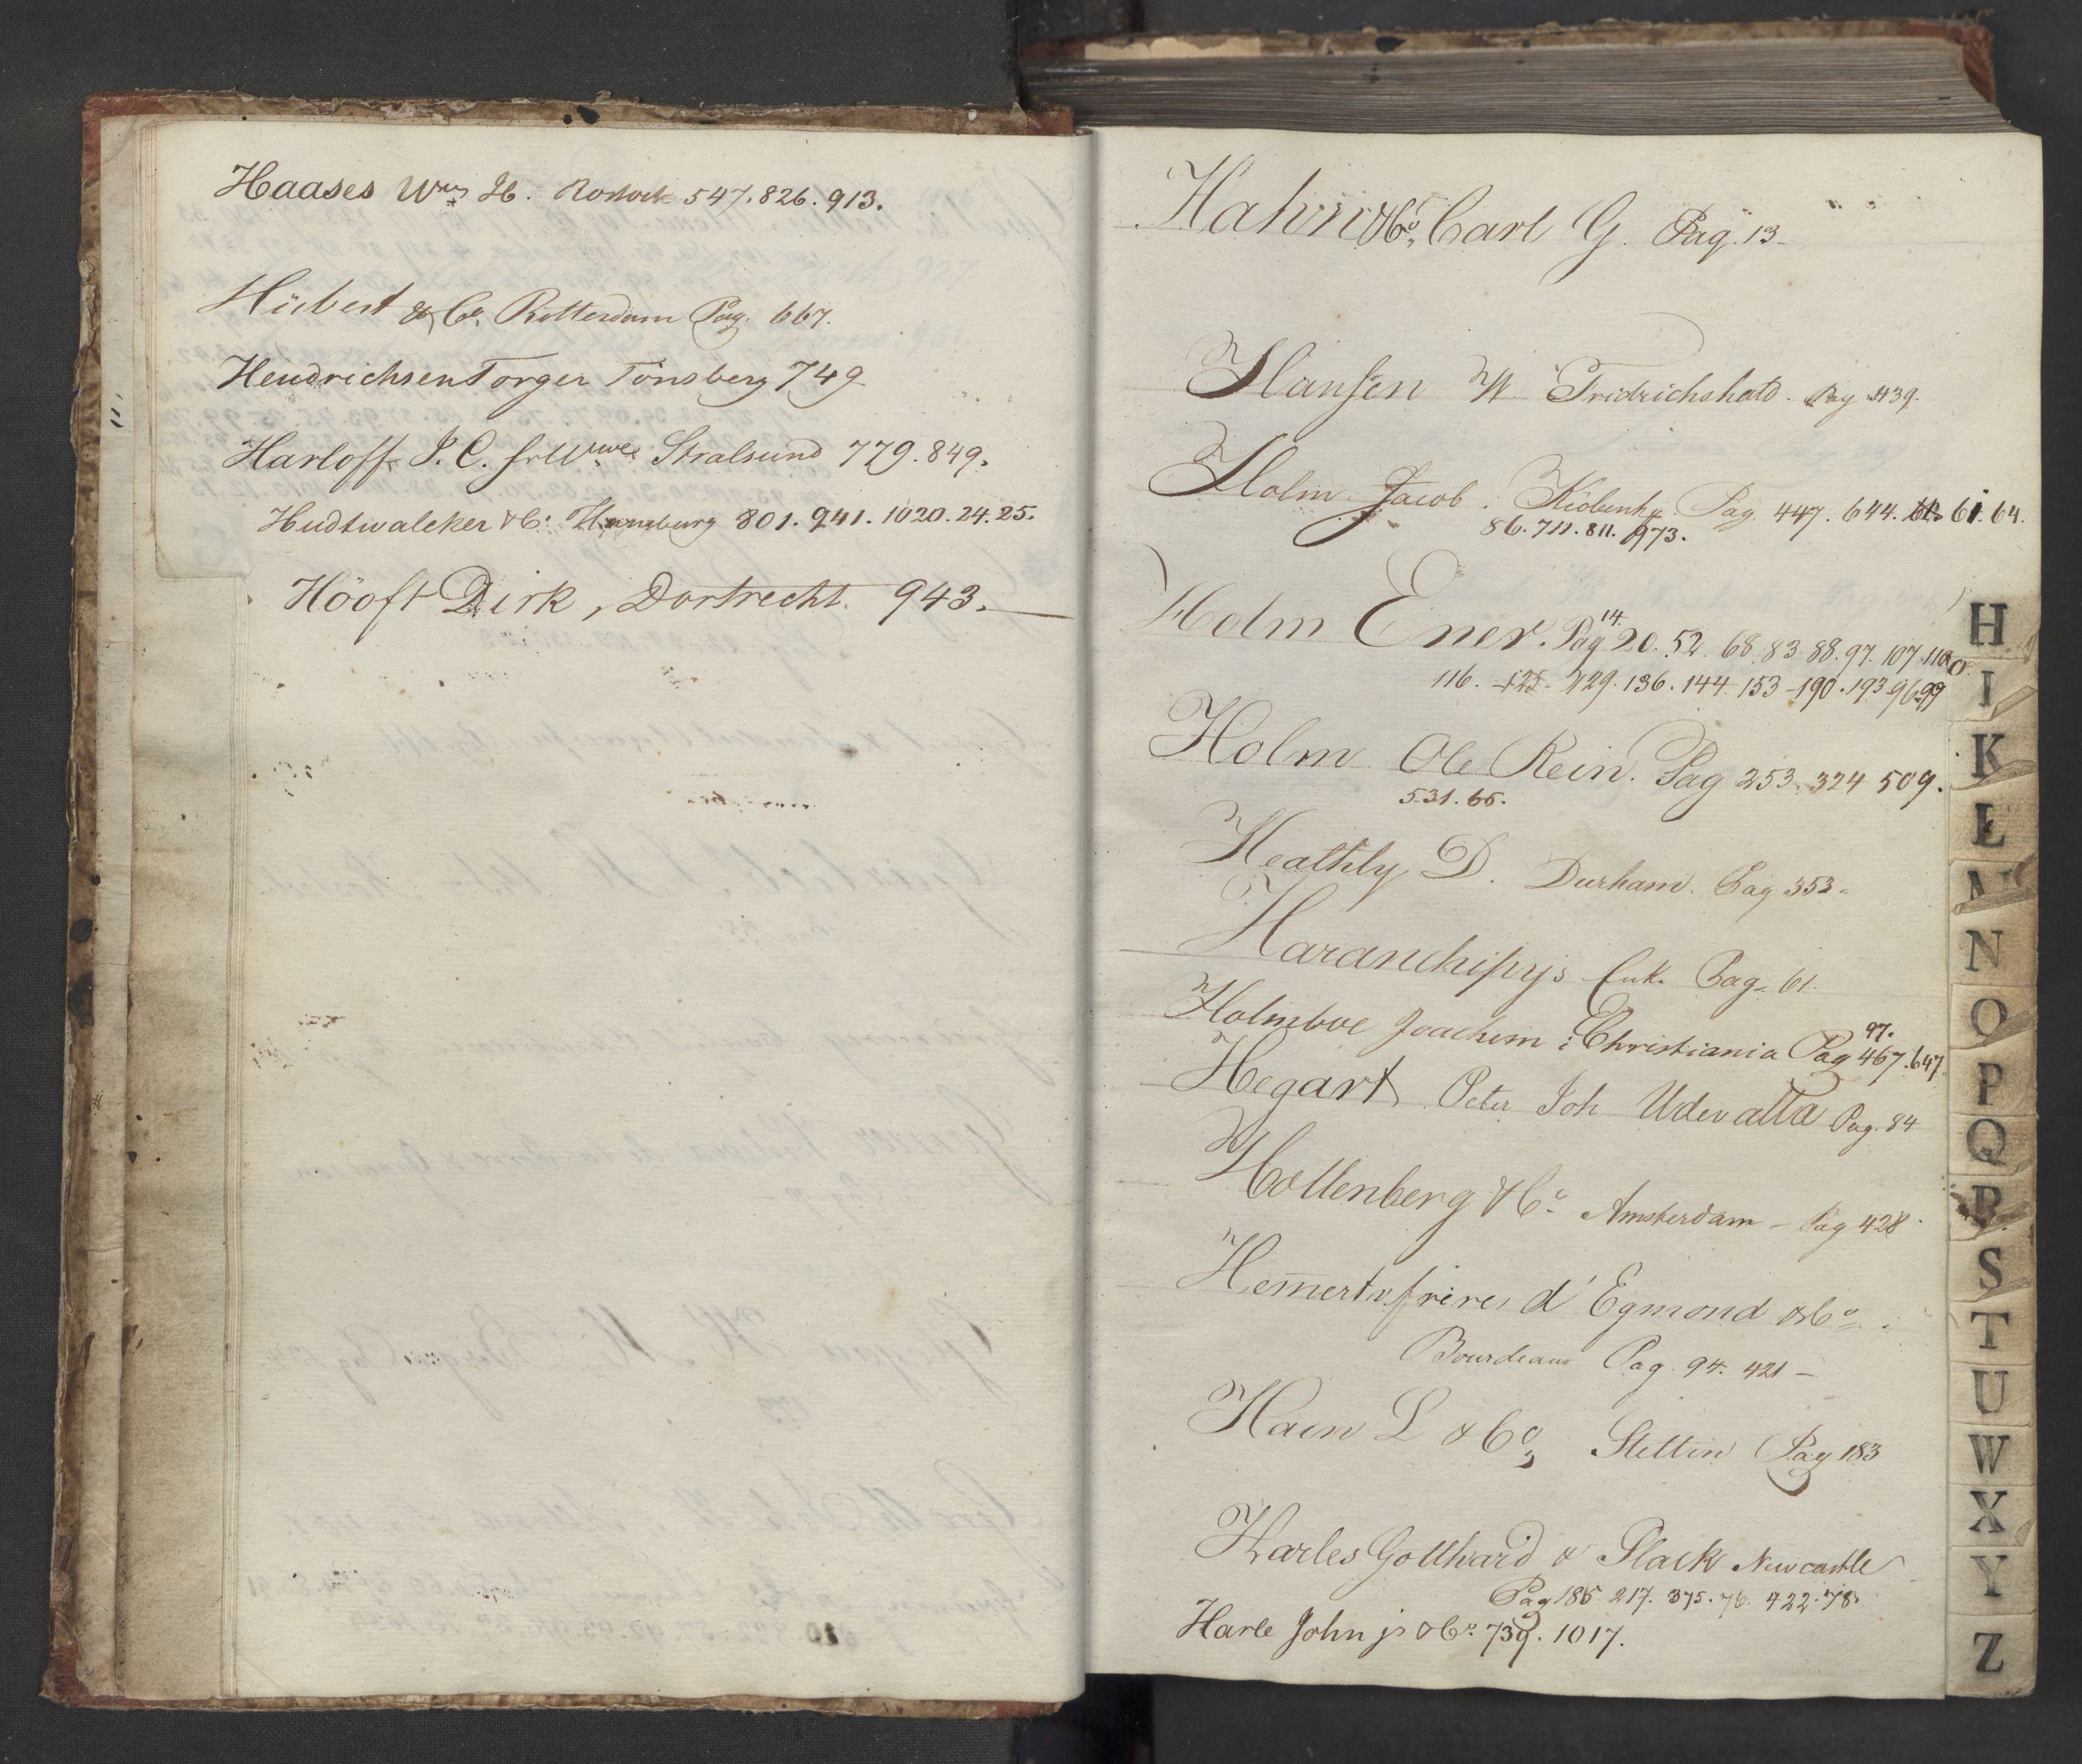 Haases Wwe H. Rostock 547. 826. 913.
Hübert & Co, Rotterdam Pag. 667.
Hendrichsen Torger Tönsberg 749
Harloff J. C. Wwe Stralsund 779. 849.
Hudtwalcker & Co Hamburg 801. 941. 1020. 24. 25.
Höoft Dirk, Dortrecht. 943.
Hahn & Co, Carl G. Pag. 13
Hansen N Fridrichshald. Pag 439.
Holm Jacob. Kiöbenh. Pag 447. 644. 61. 64.
86. 711. 811. 973.
Holm Ener. Pag 14. 20. 52. 68. 83. 88. 97. 107. 110
116. 125. 129. 136. 144. 153 - 190. 193. 96. 99
Holm Ole Rein. Pag 253. 324 509.
531. 65.
Heathly D. Durham. Pag 353
Pag. 61.
97.
Holmboe Joachim i Christiania Pag 467. 647
Hegart Peter Joh Udevalla Pag. 84
Hollenberg & Co Amsterdam - Pag 428
Hemert freres d'Egmond & Co
Bourdeaux Pag. 94. 421 -
Hain L & Co, Stettin Pag 183
Harles Gotthard & Plack Newcastle
Pag 185 217. 375. 76. 422. 78.
Harle John jr & Co 739. 1017.
H
I
K
L
M
N
O
P
Q
R
S
T
U
W
X
Y
Z